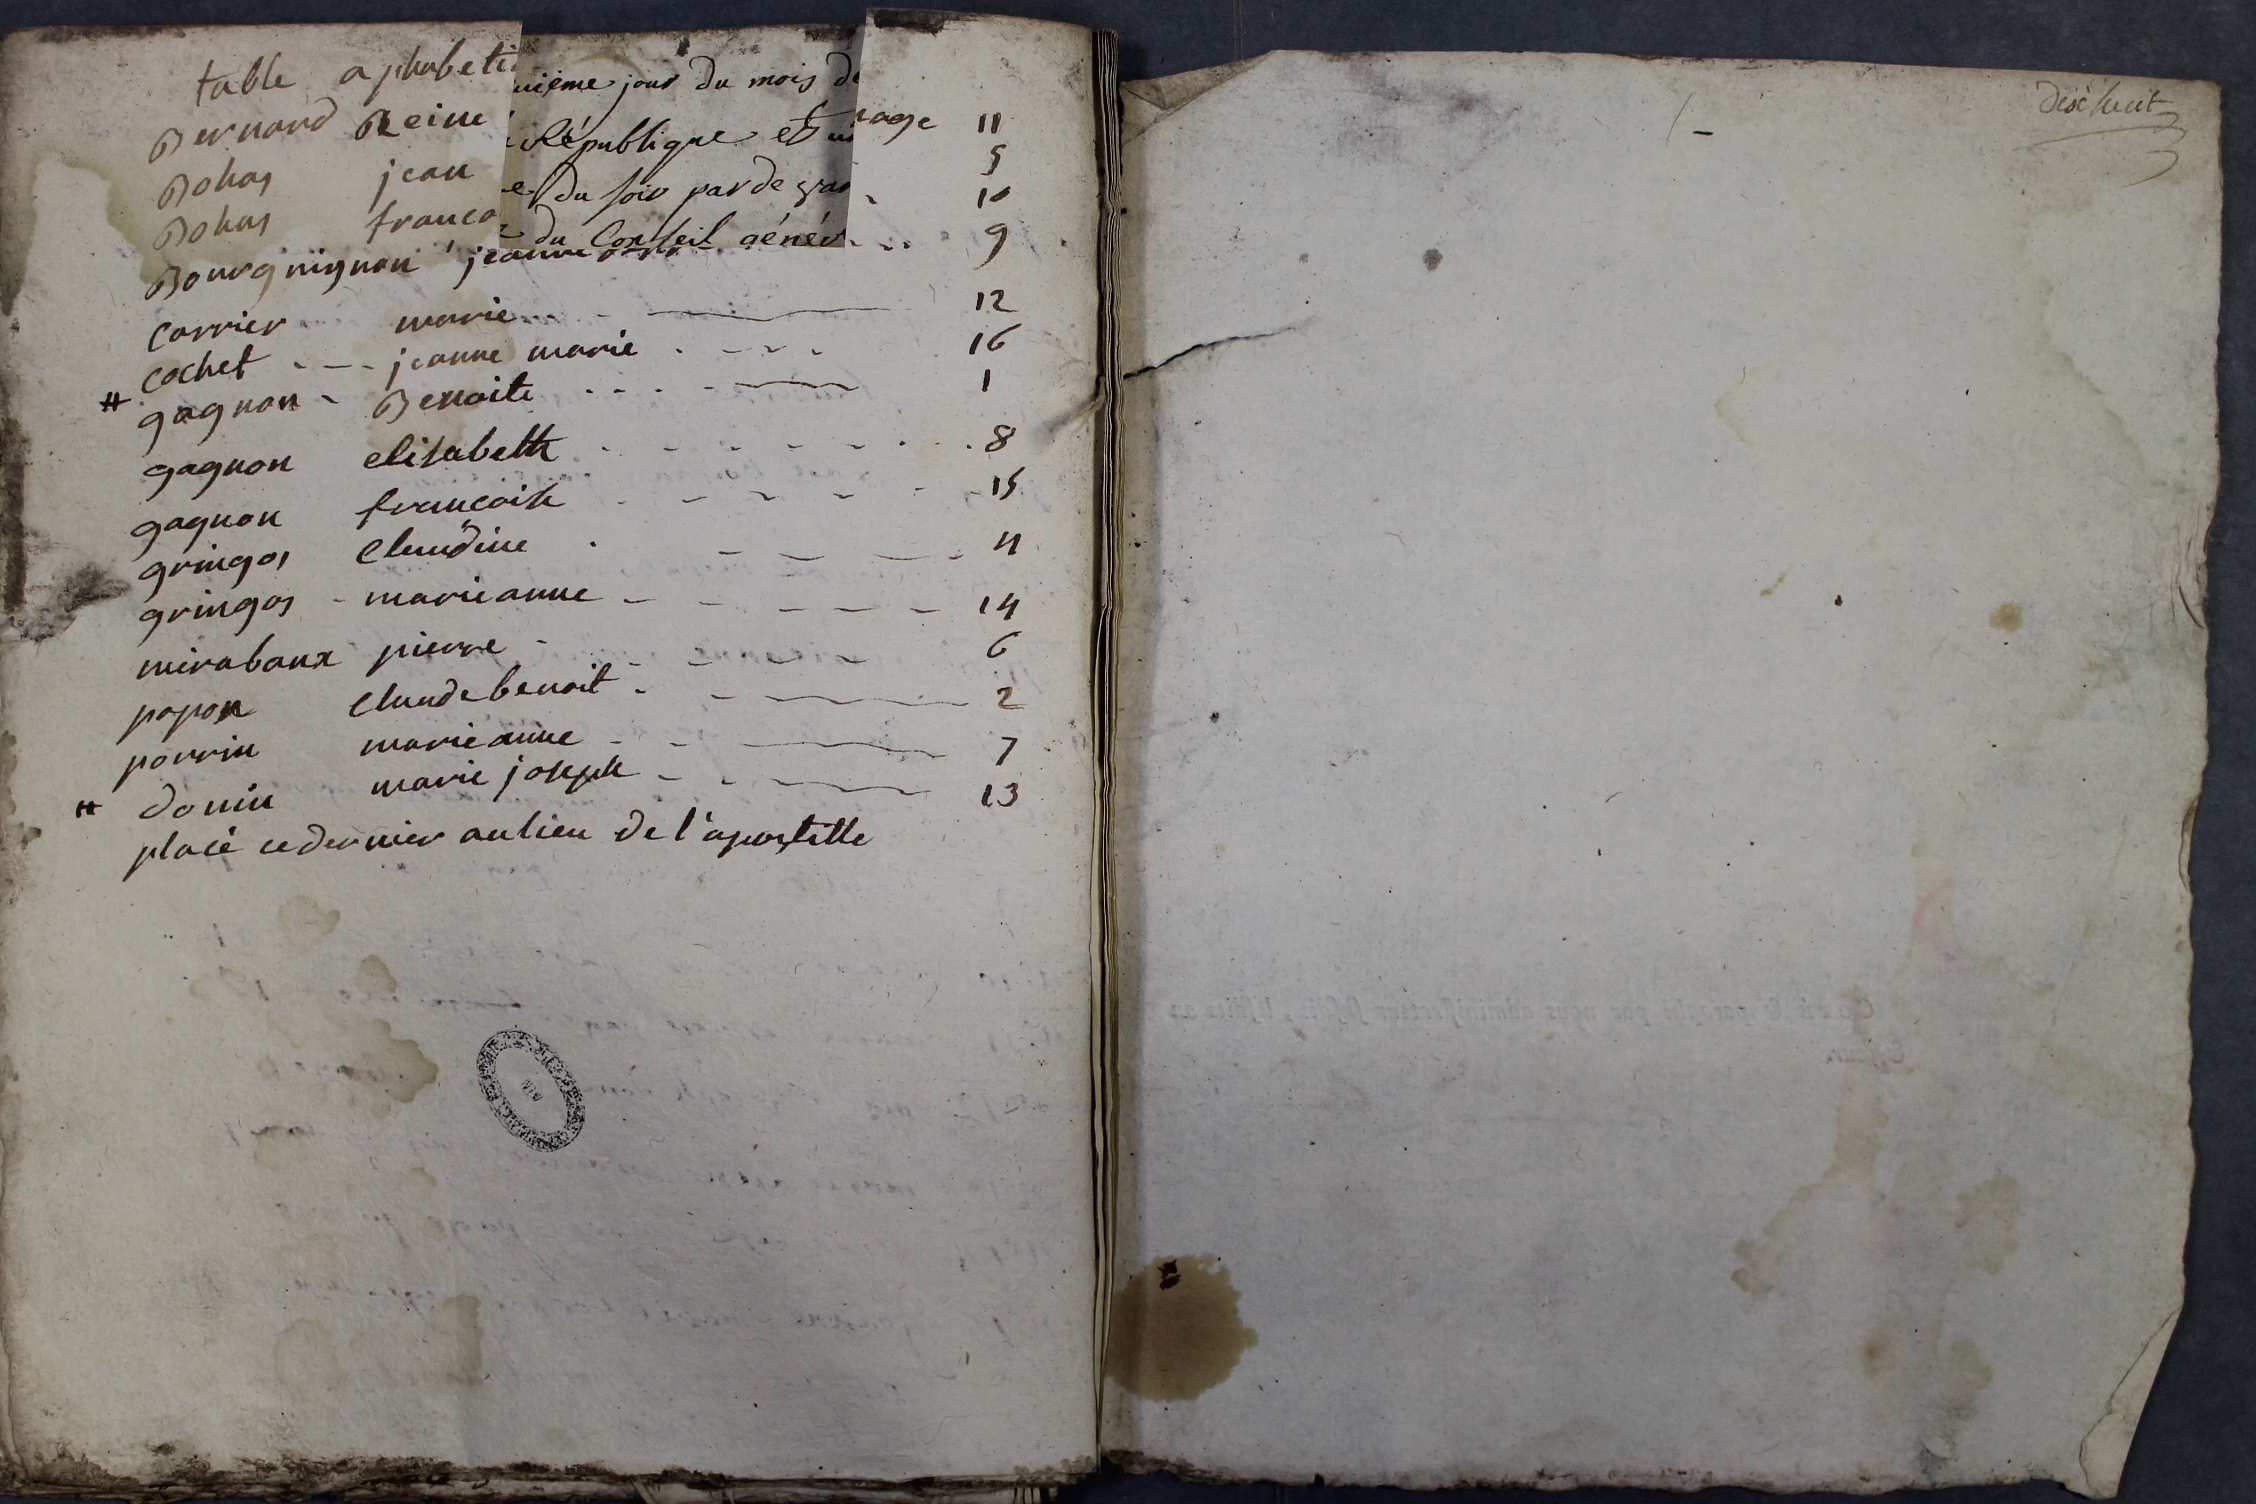 table aphabeti
uième jour du mois de
Bernard Reine page 11
République et
Bohas jean 5
du soir par de
Bohas franco 10
du Conseil génér
Bourgnignon jeanne 9
Carrier marie 12
Cochet jeanne marie 16
# gagnon Benoite 1
gagnon elisabeth 8
gagnon francoise 15
gringos Claudine 4
gringos marieanne 14
mirabaux pierre 6
popon Claude benoit 2
perrin marieanne 7
# donin marie joseph 13
placé cedernier aulieu de l'apostille
dixhuit